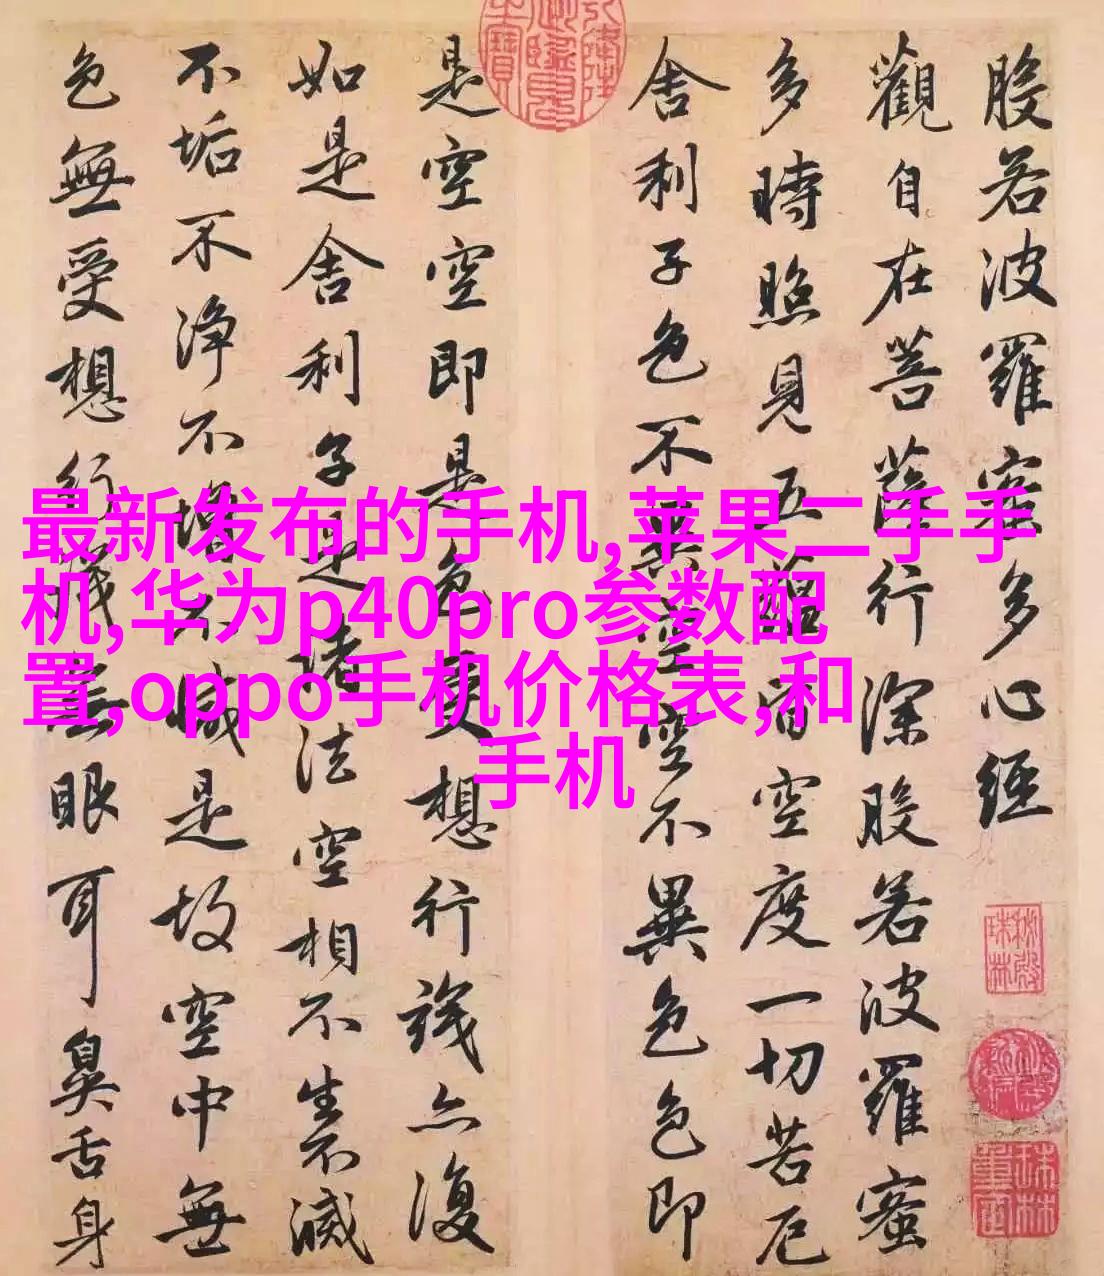 最新发布的手机,苹果二手手
机,华为p40pro参数配
置,oppo手机价格表,和
手机
般若波羅蜜多心經
觀自在菩薩行深般若波羅蜜
多時照見五蘊皆空度一切苦厄
舍利子色不異空空不異色色即
是空空即是色受想行識亦復
如是舍利子是諸法空相不生不滅
不垢不淨不增不減是故空中無
色無受想行識無眼耳鼻舌身